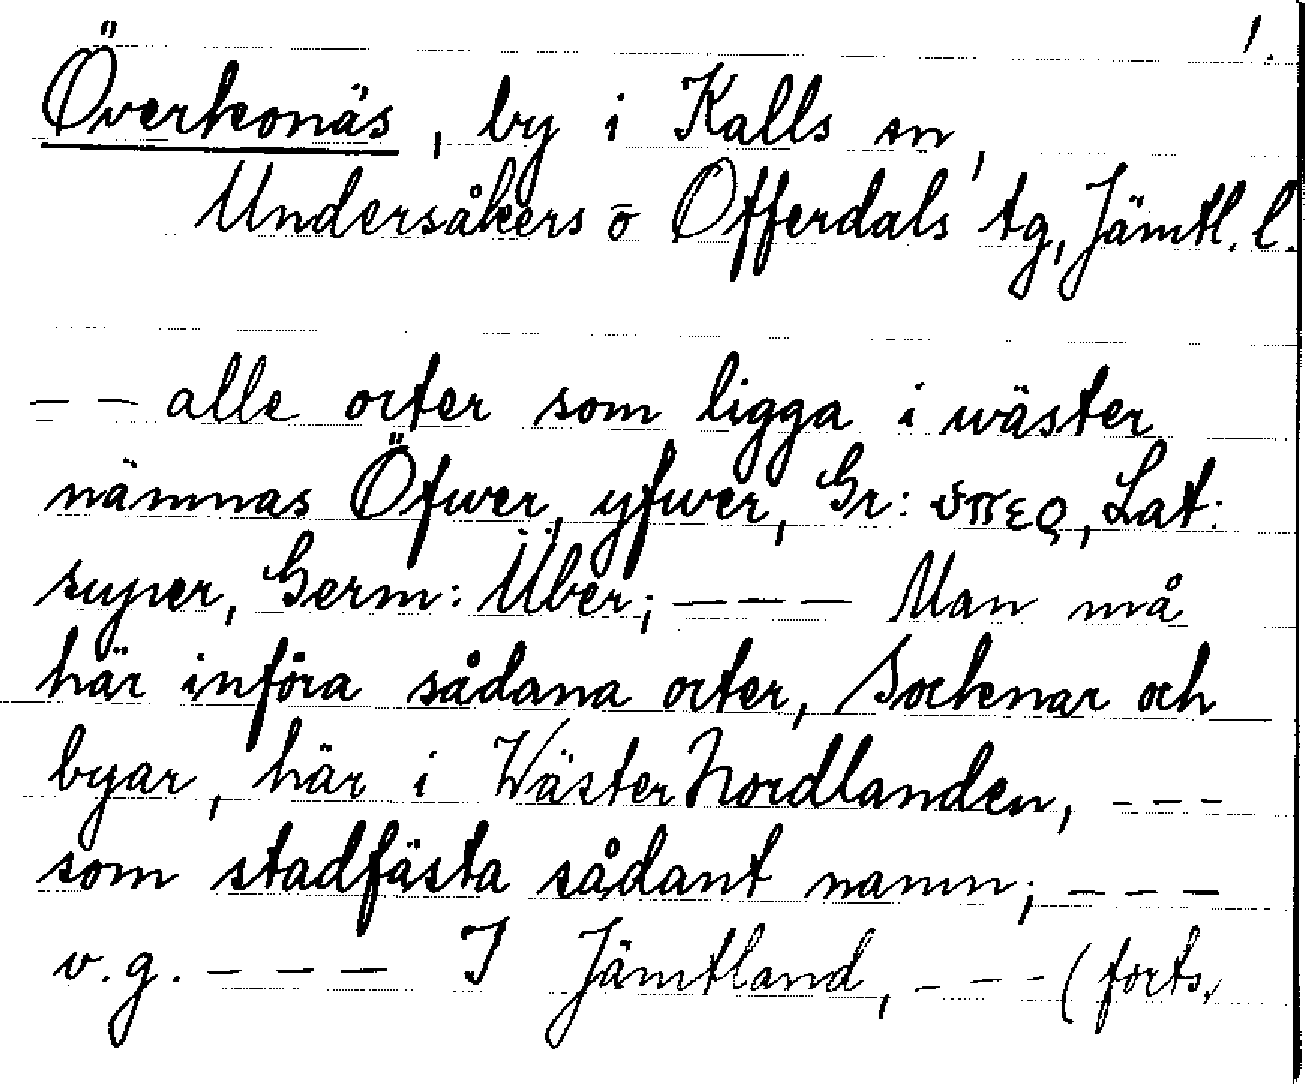 1.
Överkonäs, by i Kalls sn,
Undersåkers ō Offerdals tg, Jämtl. l.
– – alle orter som ligga i wäster
nämnas Öfwer, yfwer, Gr: ὑπερ, Lat:
super, Germ: Über; – – – Man må
här införa sådana orter, Socknar och
byar, här i Wäster Nordlanden, – – –
som stadfästa sådant namn; – – –
v.g. – – – I Jämtland, – – – (forts.